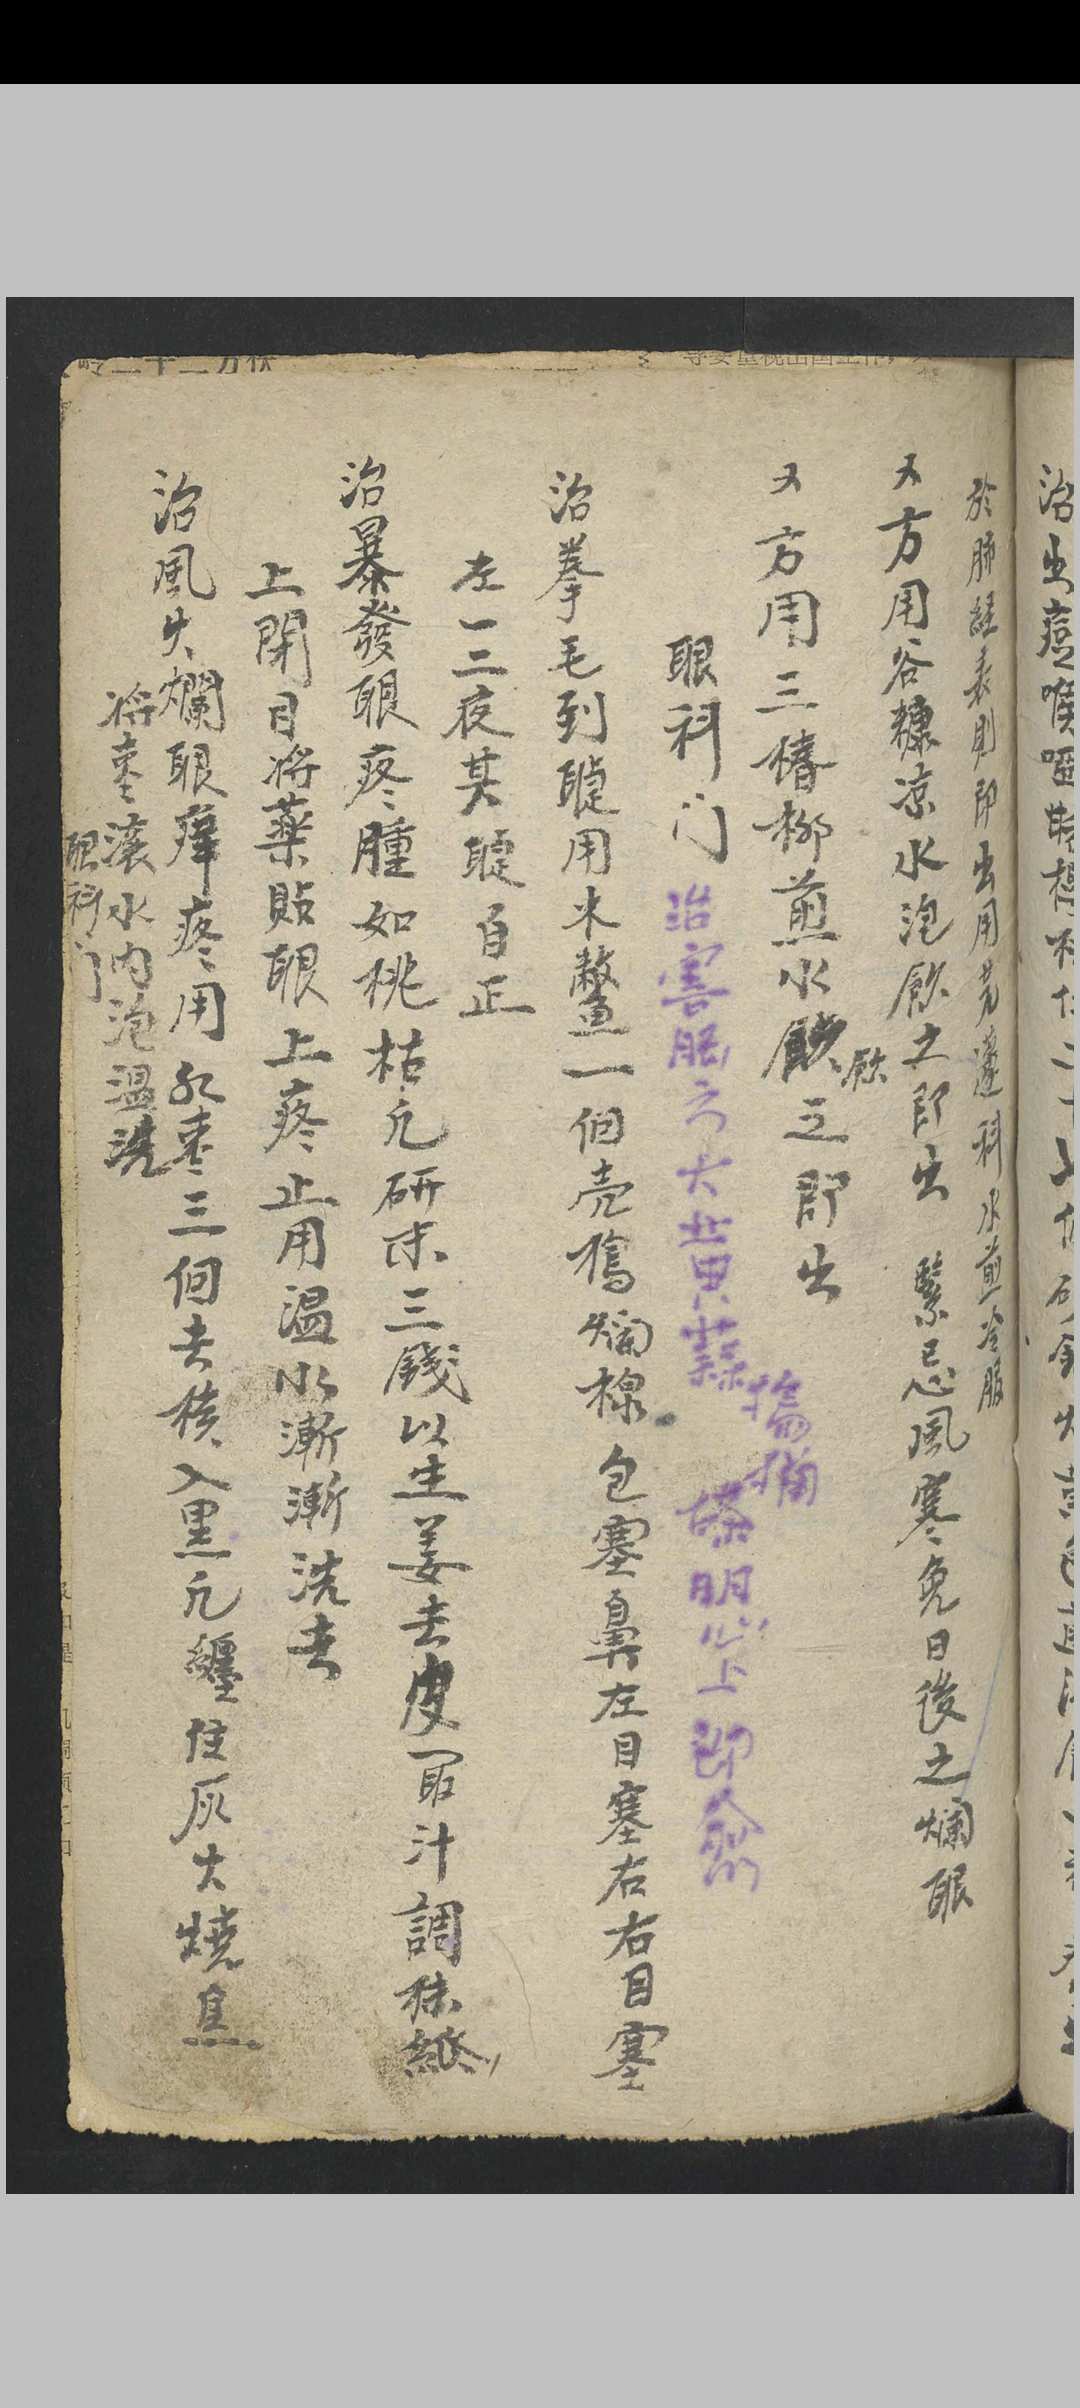 於肺經表則即出用芫荽科水煎冷服
又方用谷糠凉水泡飲之即出 緊忌風寒免日後之爛眼
又方用三椿柳煎水飲之即出
飲
眼科门
治害眼方大黄蒜搗爛 搽明心上即愈
治拳毛到睫用木鱉一個壳搗爛棉包塞鼻左目塞右右目塞
左一二夜其睫自正
治暴發眼疼腫如桃枯凡研末三錢以生姜去皮取汁調抹紙
上閉目將藥貼眼上疼止用温水漸漸洗去
治風火爛眼痒疼用紅枣三個去核入黑凡纏住灰火燒焦
將枣滚水内泡温洗
眼科门